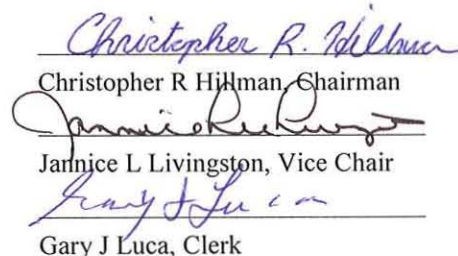 Christopher R. Hillman
Christopher R Hillman, Chairman
Jannice L Livingston, Vice Chair
Gary J Luca
Gary J Luca, Clerk